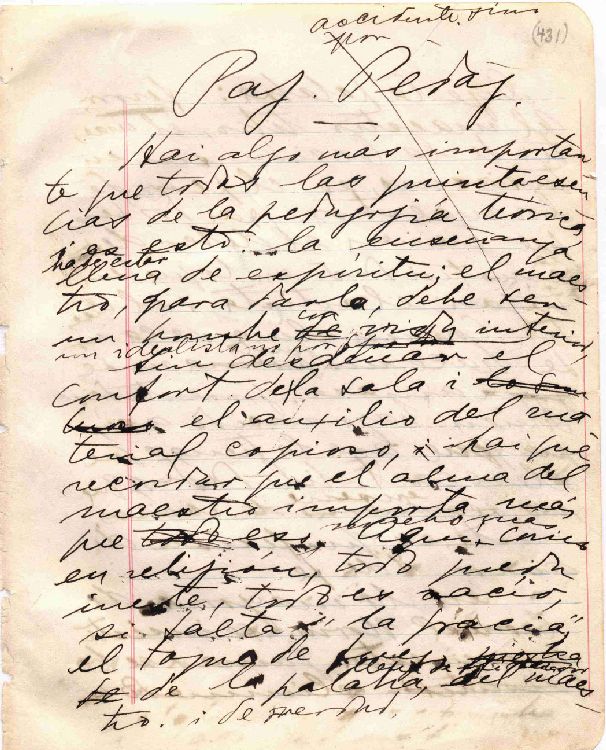 accidente. sino
por
(431)
Pag. Pedag.
Hai algo más importan
te que todas las quintaesen
cias de la pedagojía teórica,
i es esto: la enseñanza
ha de estar
llena de espíritu; el maes-
tro, para darla, debe ser
un hombre de vida interior,
un idealista no por
sin desdeñar el
confort de la sala i los
el auxilio del ma
terial copioso, i hai que
recordar que el alma del
maestro importa más
mucho mas
que todo eso. Aquí, como
en relijión, todo queda
inerte, todo es vacío,
si falta "la gracia",
el toque de
de la palabra del maes-
tro. i de verdad.